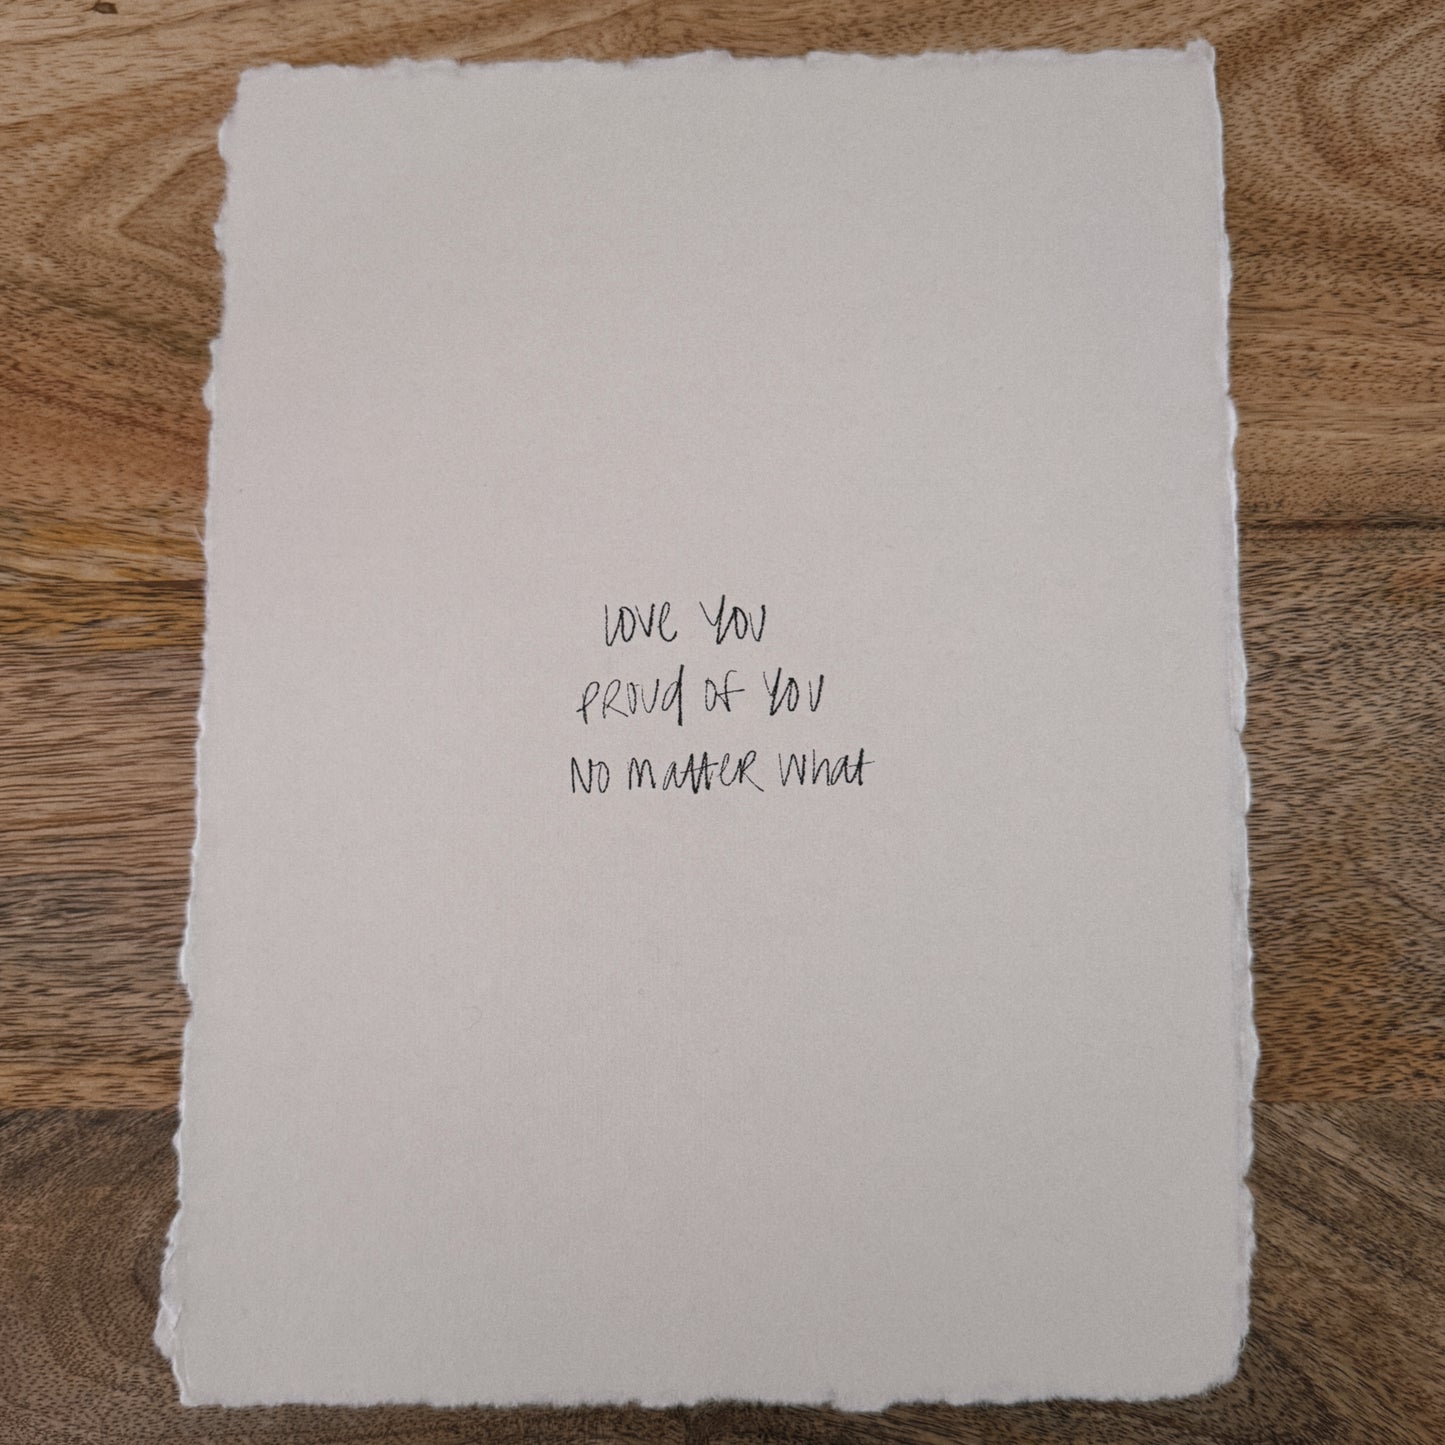 love you
proud of you
no matter what